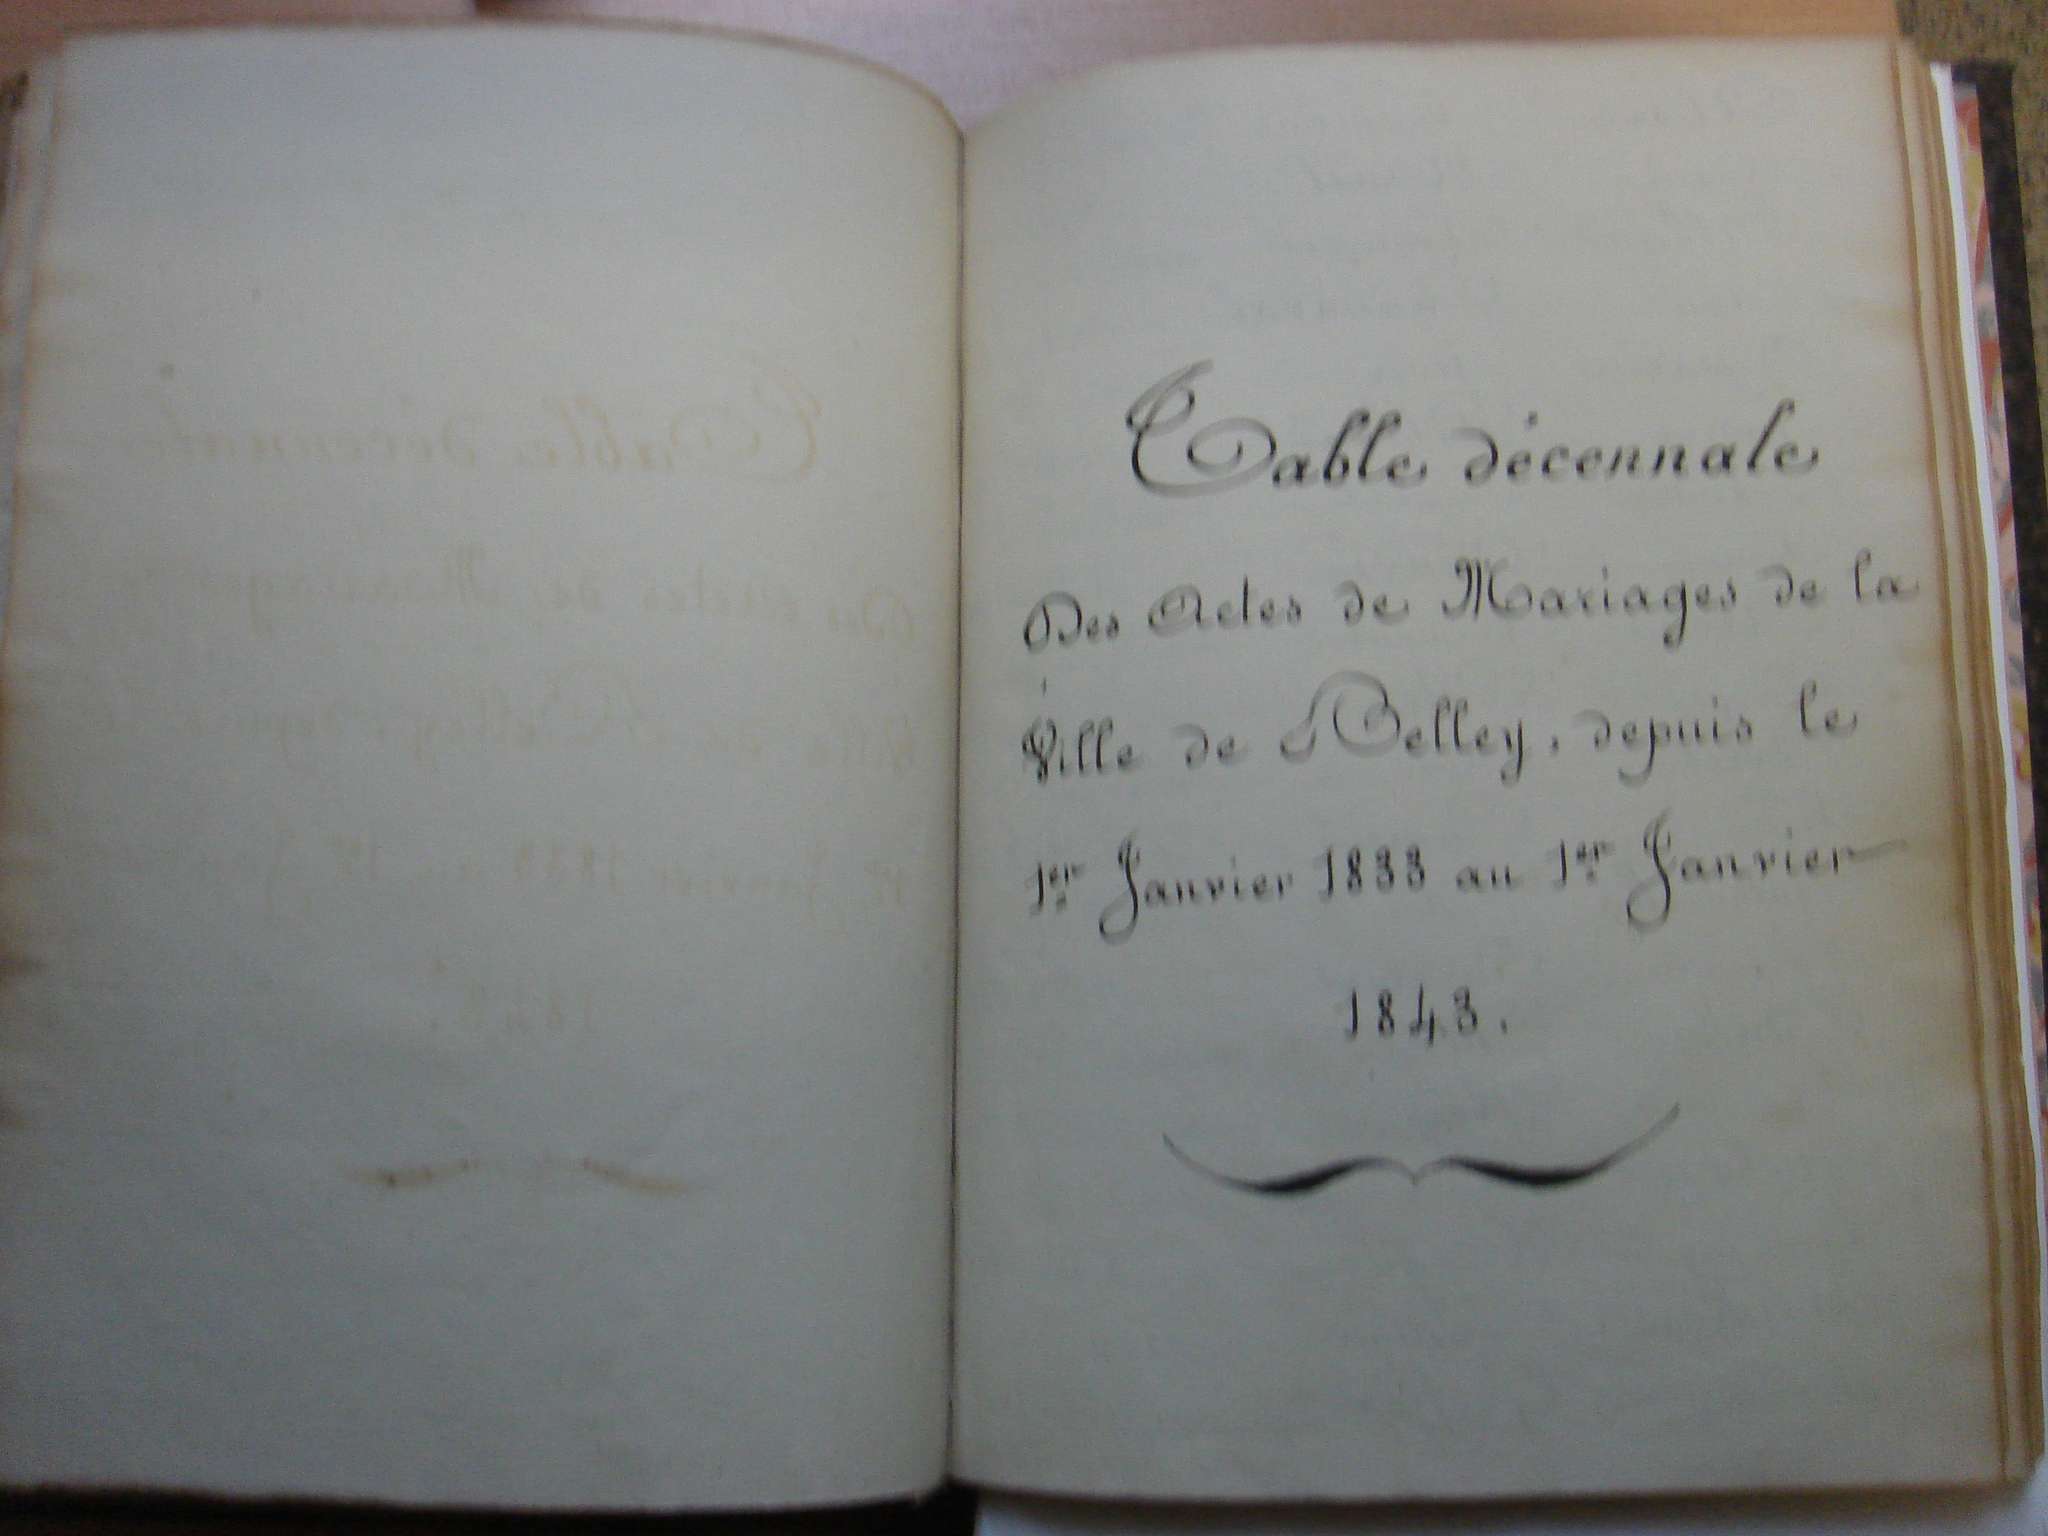 Table décennale
Des Actes de Mariages de la
Ville de Belley, depuis le
1er Janvier 1833 au 1er Janvier
1843.